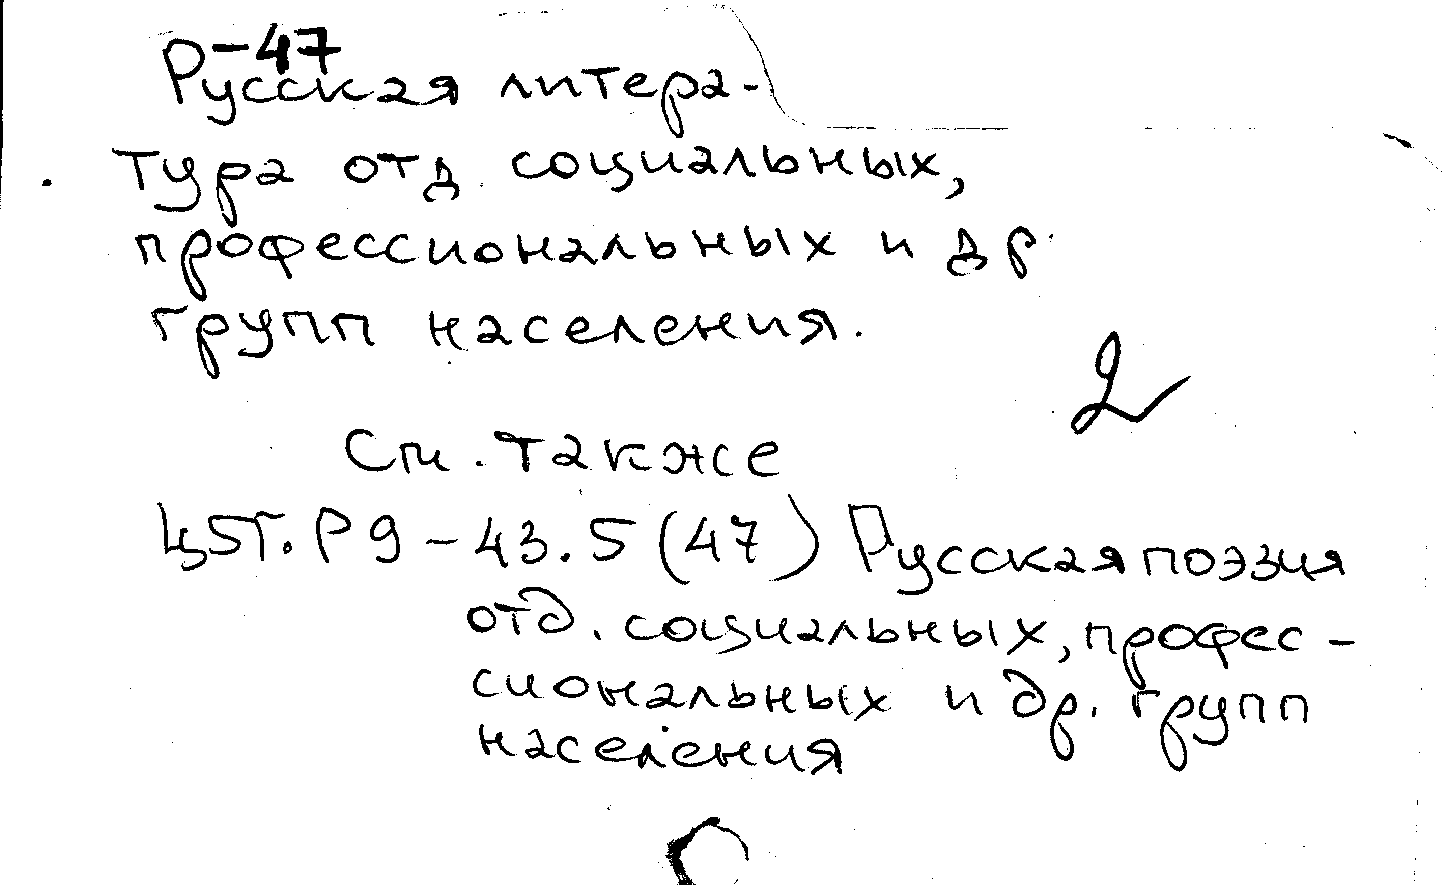 Р-47
Русская литера-
тура отд социальных,
профессиональных и др.
групп населения.
2
См. также
Ц5Т.Р9-43.5(47) Русская поэзия
отд. социальных, профес-
сиональных и др. групп
населения